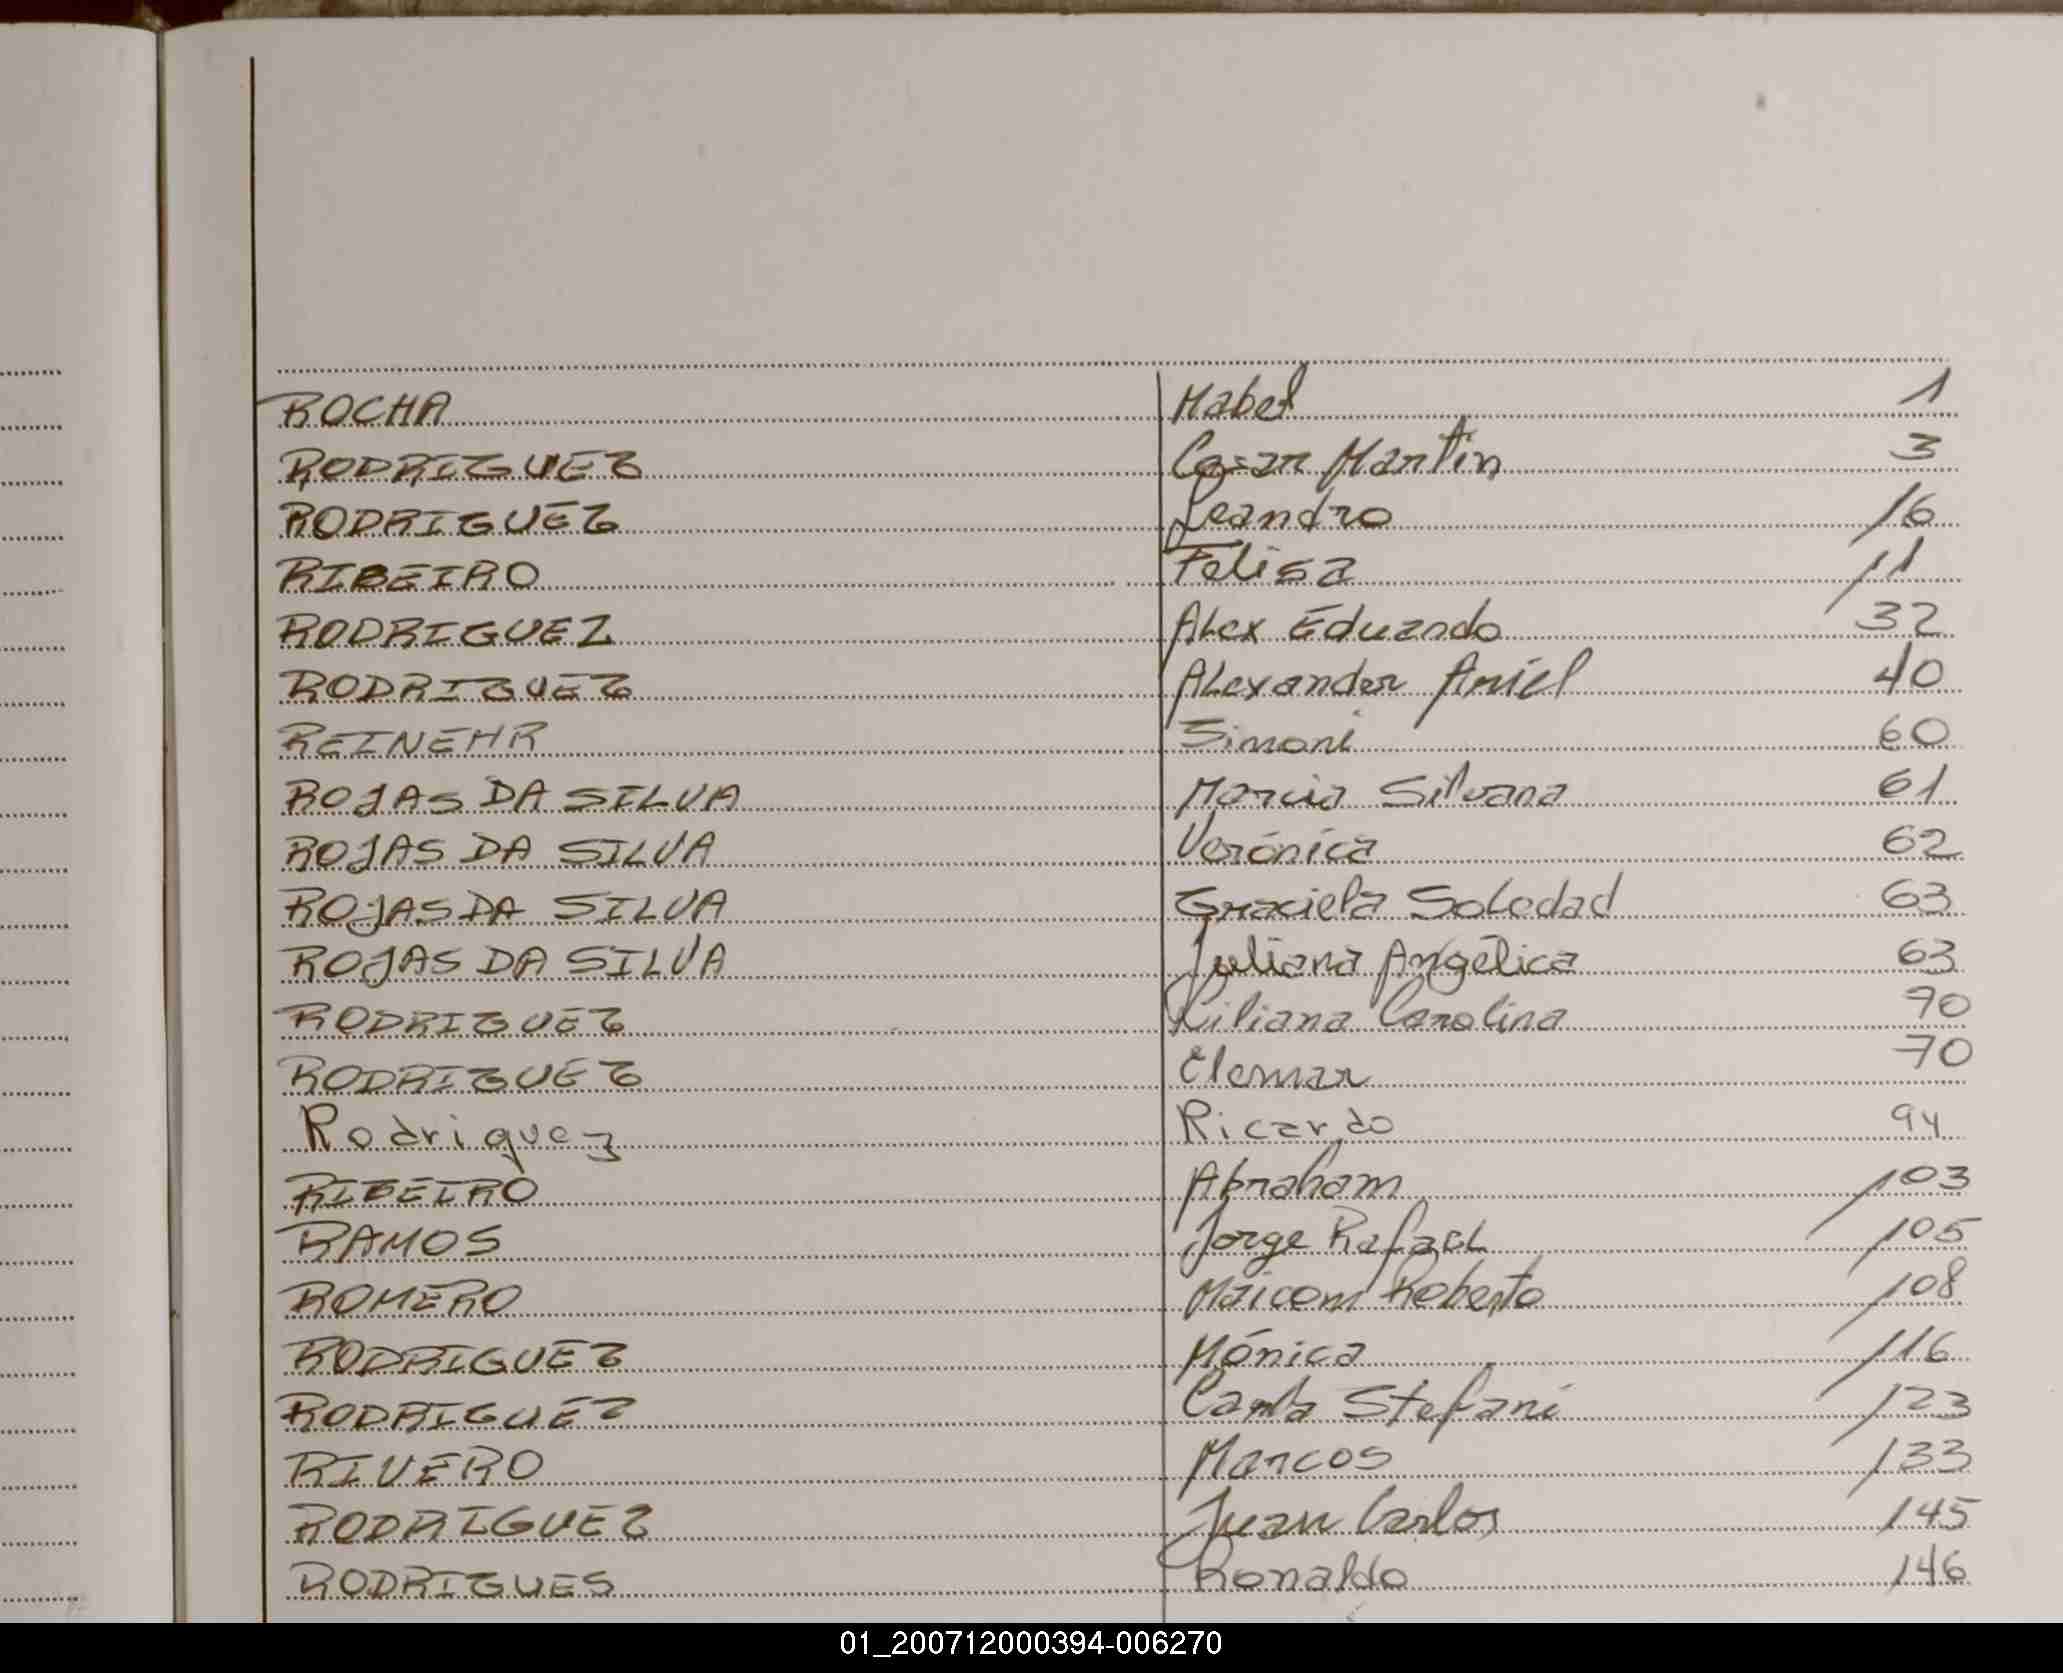 ROCHA Mabel 1
RODRIGUEZ Cesar Martin 3
RODRIGUEZ Leandro 16
RIBEIRO Felisa 11
RODRIGUEZ Alex Eduardo 32
RODRIGUEZ Alexander Ariel 40
REINEHR Simoni 60
ROJAS DA SILVA Marcia Silvana 61
ROJAS DA SILVA Verónica 62
ROJAS DA SILVA Graciela Soledad 63
ROJAS DA SILVA Juliana Angélica 63
RODRIGUEZ Liliana Carolina 70
RODRIGUEZ Elemar 70
Rodriguez Ricardo 94
RIBEIRO Abraham 103
RAMOS Jorge Rafael 105
ROMERO Maicom Roberto 108
RODRIGUEZ Mónica 116
RODRIGUEZ Carla Stefani 123
RIVERO Marcos 133
RODRIGUEZ Juan Carlos 145
RODRIGUES Ronaldo 146
01_200712000394-006270